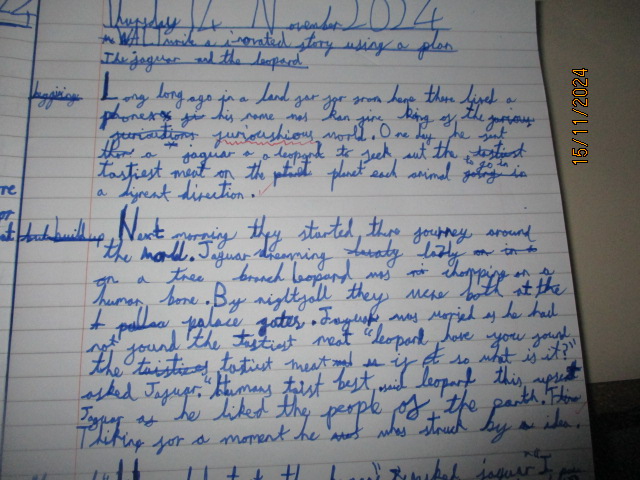 Thursday 14 November 2024
WALT write a inovated story using a plan
The jaguar and the leopard
Long long ago in a land far far from here there lived a
phenex his name was kan jine king of the furious
furioushious world. One day he sent
a jaguar a a leopard to seek out the tastiest
tastiest meat on the planet each animal going in
to go in
a difrent direction.
build up
Next morning they started there journey around
the world. Jaguar dreaming lazly
on a tree branch leopard was chomping on a
human bone. By nightfall they were both at the
palace gates. Jaguar was woried as he had
not found the tastiest meat "leopard have you found
the tastiest meat if so what is it?"
asked Jaguar. "Humans taist best said leopard this upset
Jaguar as he liked the people of the earth. Then
Thiking for a moment he was struck by a idea.
jaguar "I
15/11/2024